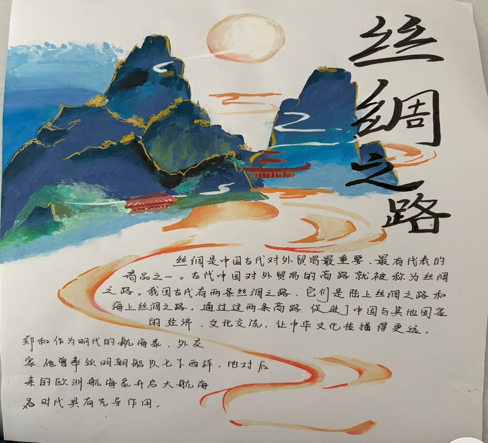 丝绸之路
丝绸是中国古代对外贸易最重要、最有代表的
商品之一。古代中国对外贸易的商路就被称为丝绸
之路。我国古代有两条丝绸之路，它们是陆上丝绸之路和
海上丝绸之路。通过这两条商路 促进了中国与其他国家
的经济、文化交流，让中华文化传播得更远。
郑和作为明代的航海家、外交
家，他曾率领明朝船队七下西洋，他对后
来的欧洲航海家开启大航海
时代具有先导作用。